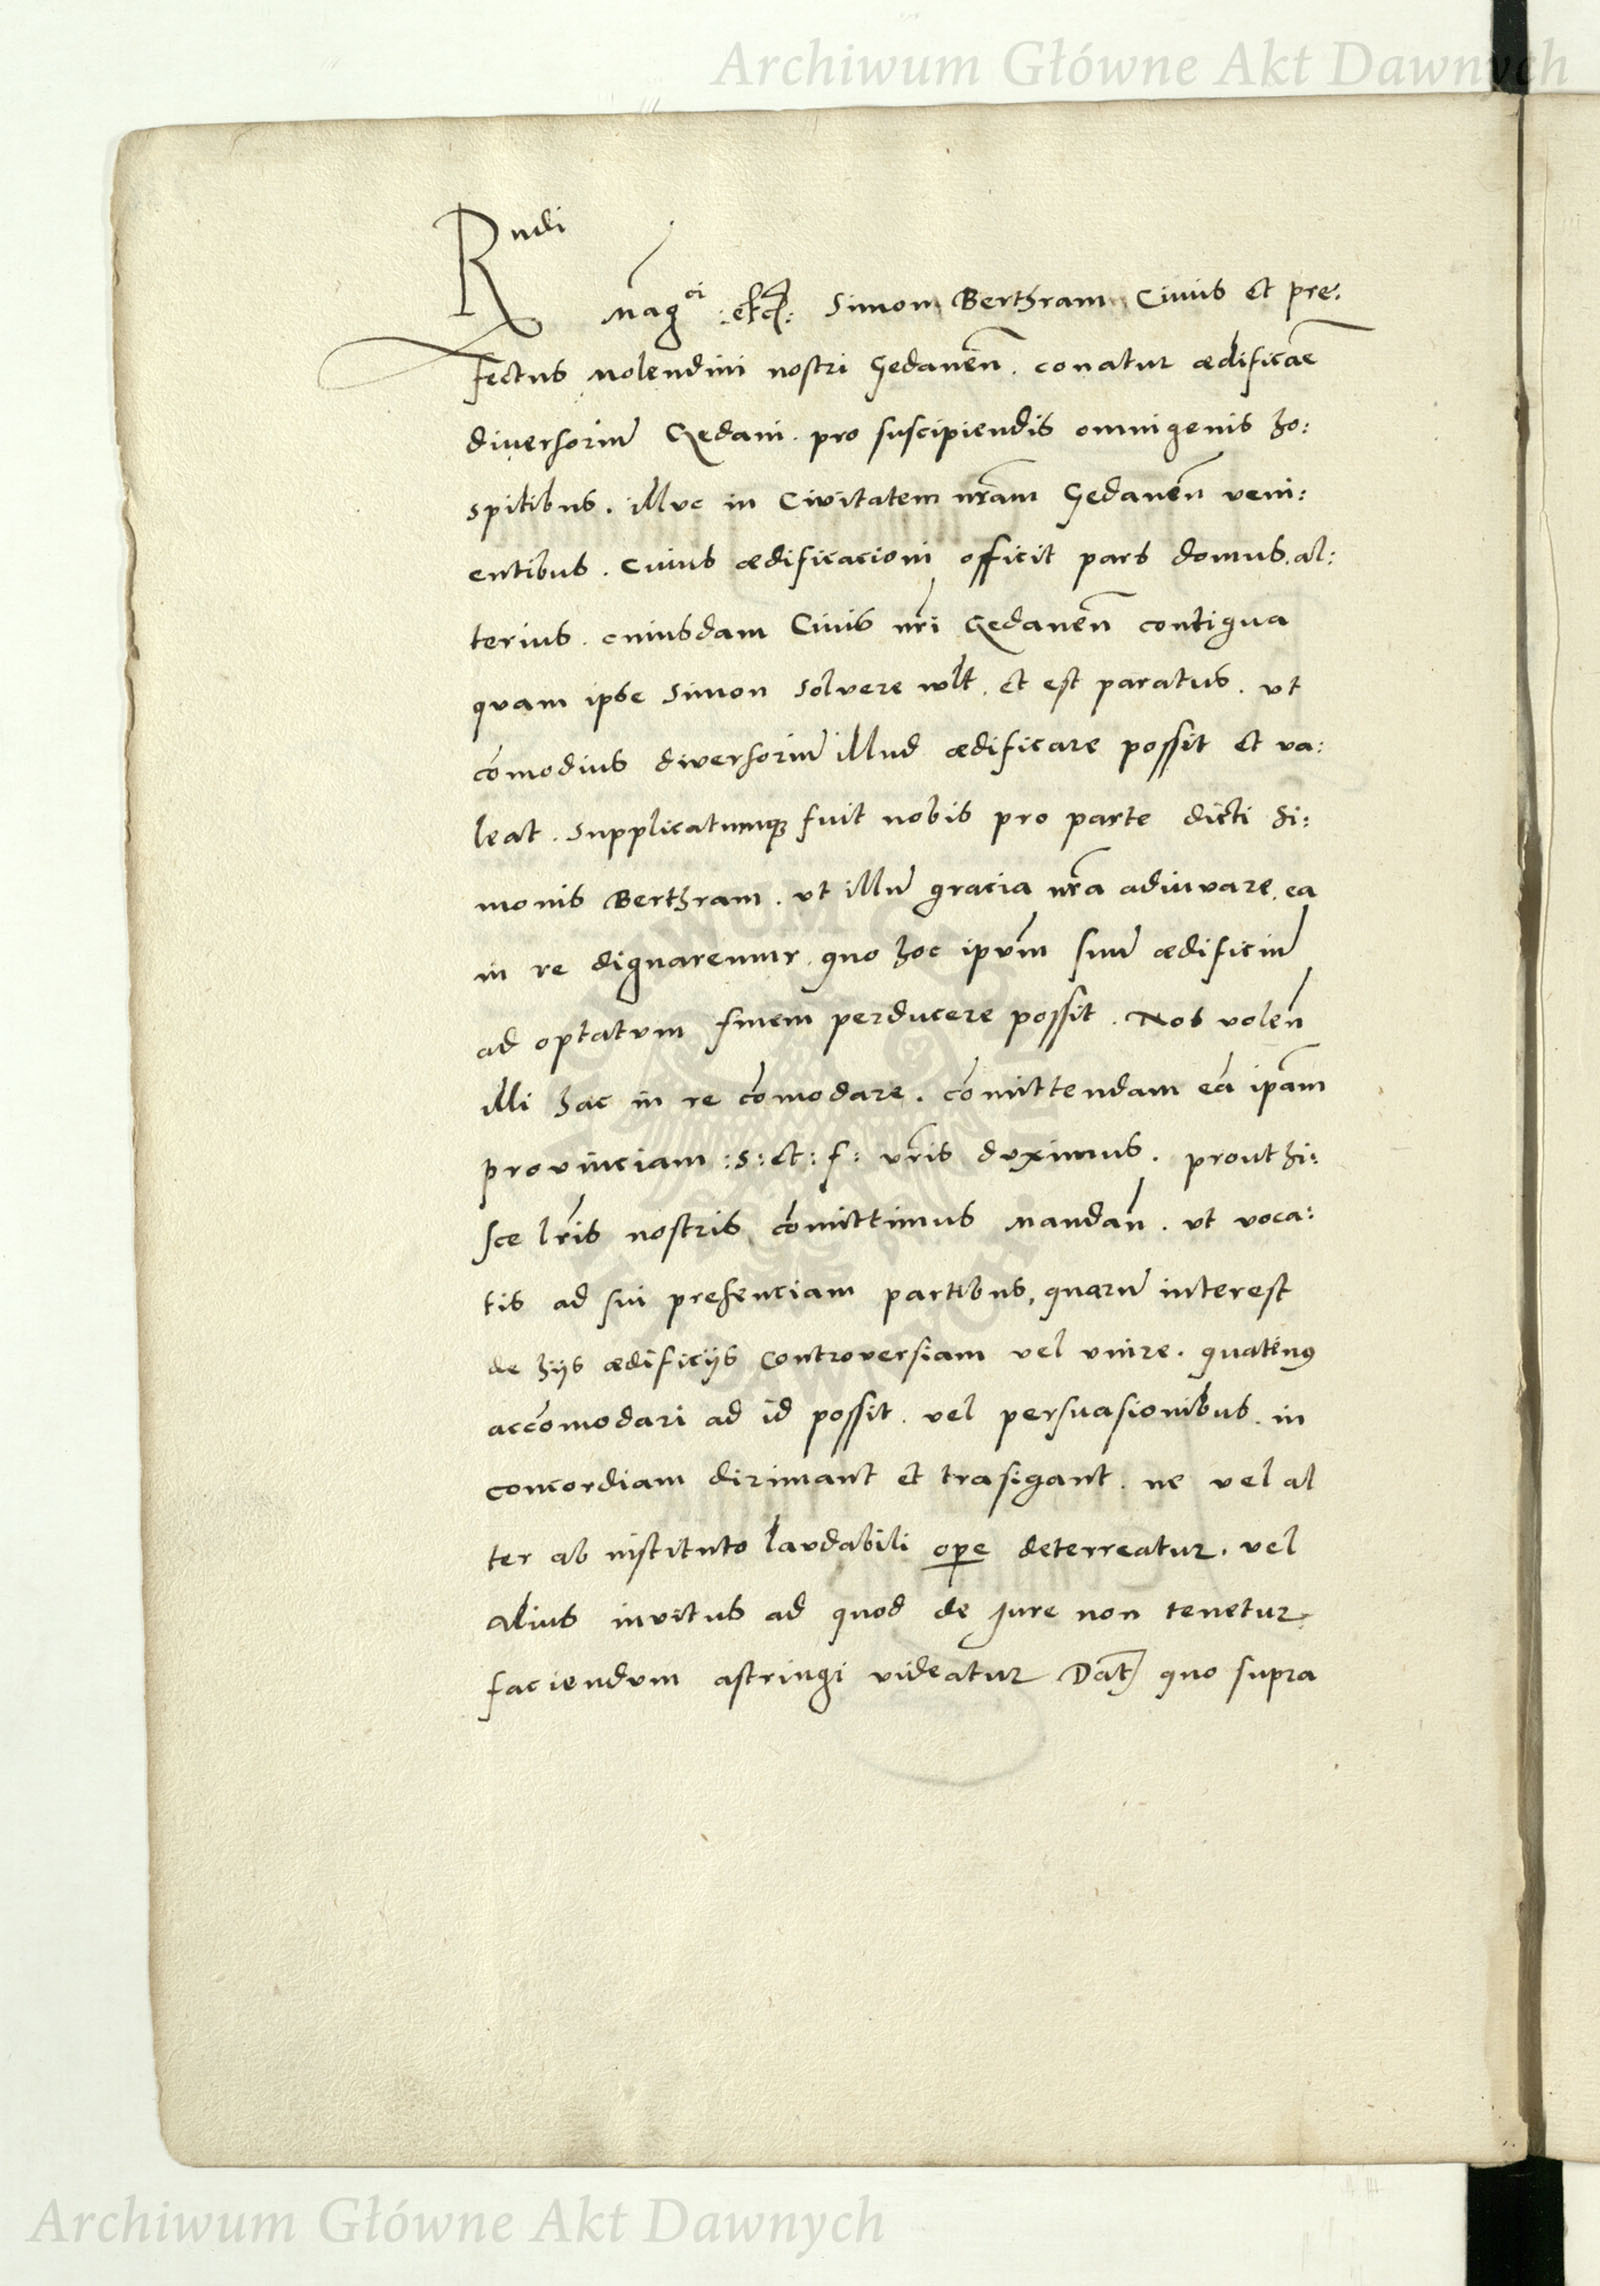 Archiwum Główne Akt Dawnych
Rndi
Mag̃ci :etc̃: Simon Berthram Ciuis et pre:
fectus Molendini nostri Gedanen̄. conatur ædificar̄e
diuersoriu̅ Gedani. pro suscipiendis omnigenis ho:
spitibus. illuc in Ciuitatem nr̄am Gedanen̄ veni:
entibus. Cuius ædificacioni officit pars domus. al:
terius. cuiusdam Ciuis nr̄i Gedanen̄ contigua
quam ipse Simon solvere wlt. et est paratus. ut
co̅modius diversoriu̅ illud ædificare possit et va:
leat. supplicatumqz fuit nobis pro parte dicti Si:
monis Berthram. ut illu̅ gracia nr̄a adiuvare. ea
in re dignaremur. quo hoc ipsu̅m suu̅ ædificiu̅
ad optatvm finem perducere possit. Nos volen̄
illi hac in re co̅modare. co̅mittendam ea̅ ip̄am
provinciam :s: et: f: vr̄is duximus. prout hi:
sce lr̄is nostris co̅mittimus Mandan̄. ut voca:
tis ad sui presenciam partibus, quaru̅ interest
de hijs ædificijs Controversiam vel vnire. quatenus
acco̅modari ad id possit. vel persuasionibus. in
concordiam dirimant et trasigant. ne vel al
ter ab instituto laudabili op̲e deterreatur. vel
alius invitus ad quod de Jure non tenetur
faciendvm astringi videatur Dat̄ quo supra
Archiwum Główne Akt Dawnych